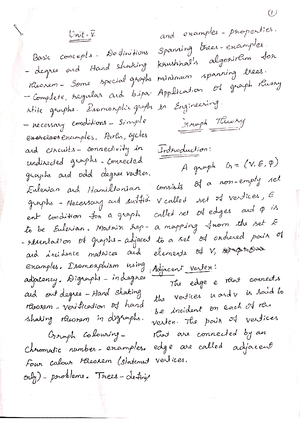 ①
Unit-V
Basic concepts - Definitions
- degree and Hand shaking
theorem - Some special graphs
- Complete, regular and bipar-
tite graphs. Isomorphic graph
- necessary conditions - Simple
examples. Paths, cycles
and circuits - connectivity in
undirected graphs - Connected
graphs and odd degree vertices.
Eulerian and Hamiltonian
graphs - Necessary and suffici-
ent condition for a graph
to be Eulerian. Matrix rep-
resentation of graphs - adjacency
and incidence matrices and
examples. Isomorphism using
adjacency. Digraphs - indegree
and out degree - Hand shaking
theorem - verification of hand
shaking theorem in digraphs.
Graph colouring -
Chromatic number - examples.
Four colour theorem (statement
only) - problems. Trees - definitions
and examples - properties.
Spanning trees - examples
krushkal's algorithm for
minimum spanning trees.
Application of graph theory
in Engineering.
Graph Theory
Introduction:
A graph G = (V, E, φ)
consists of a non-empty set
V called set of vertices, E
called set of edges and φ is
a mapping from the set E
to a set of ordered pair of
elements of V,
Adjacent vertex:
The edge e that connects
the vertices u and v is said to
be incident on each of the
vertex. The pair of vertices
that are connected by an
edge are called adjacent
vertices.